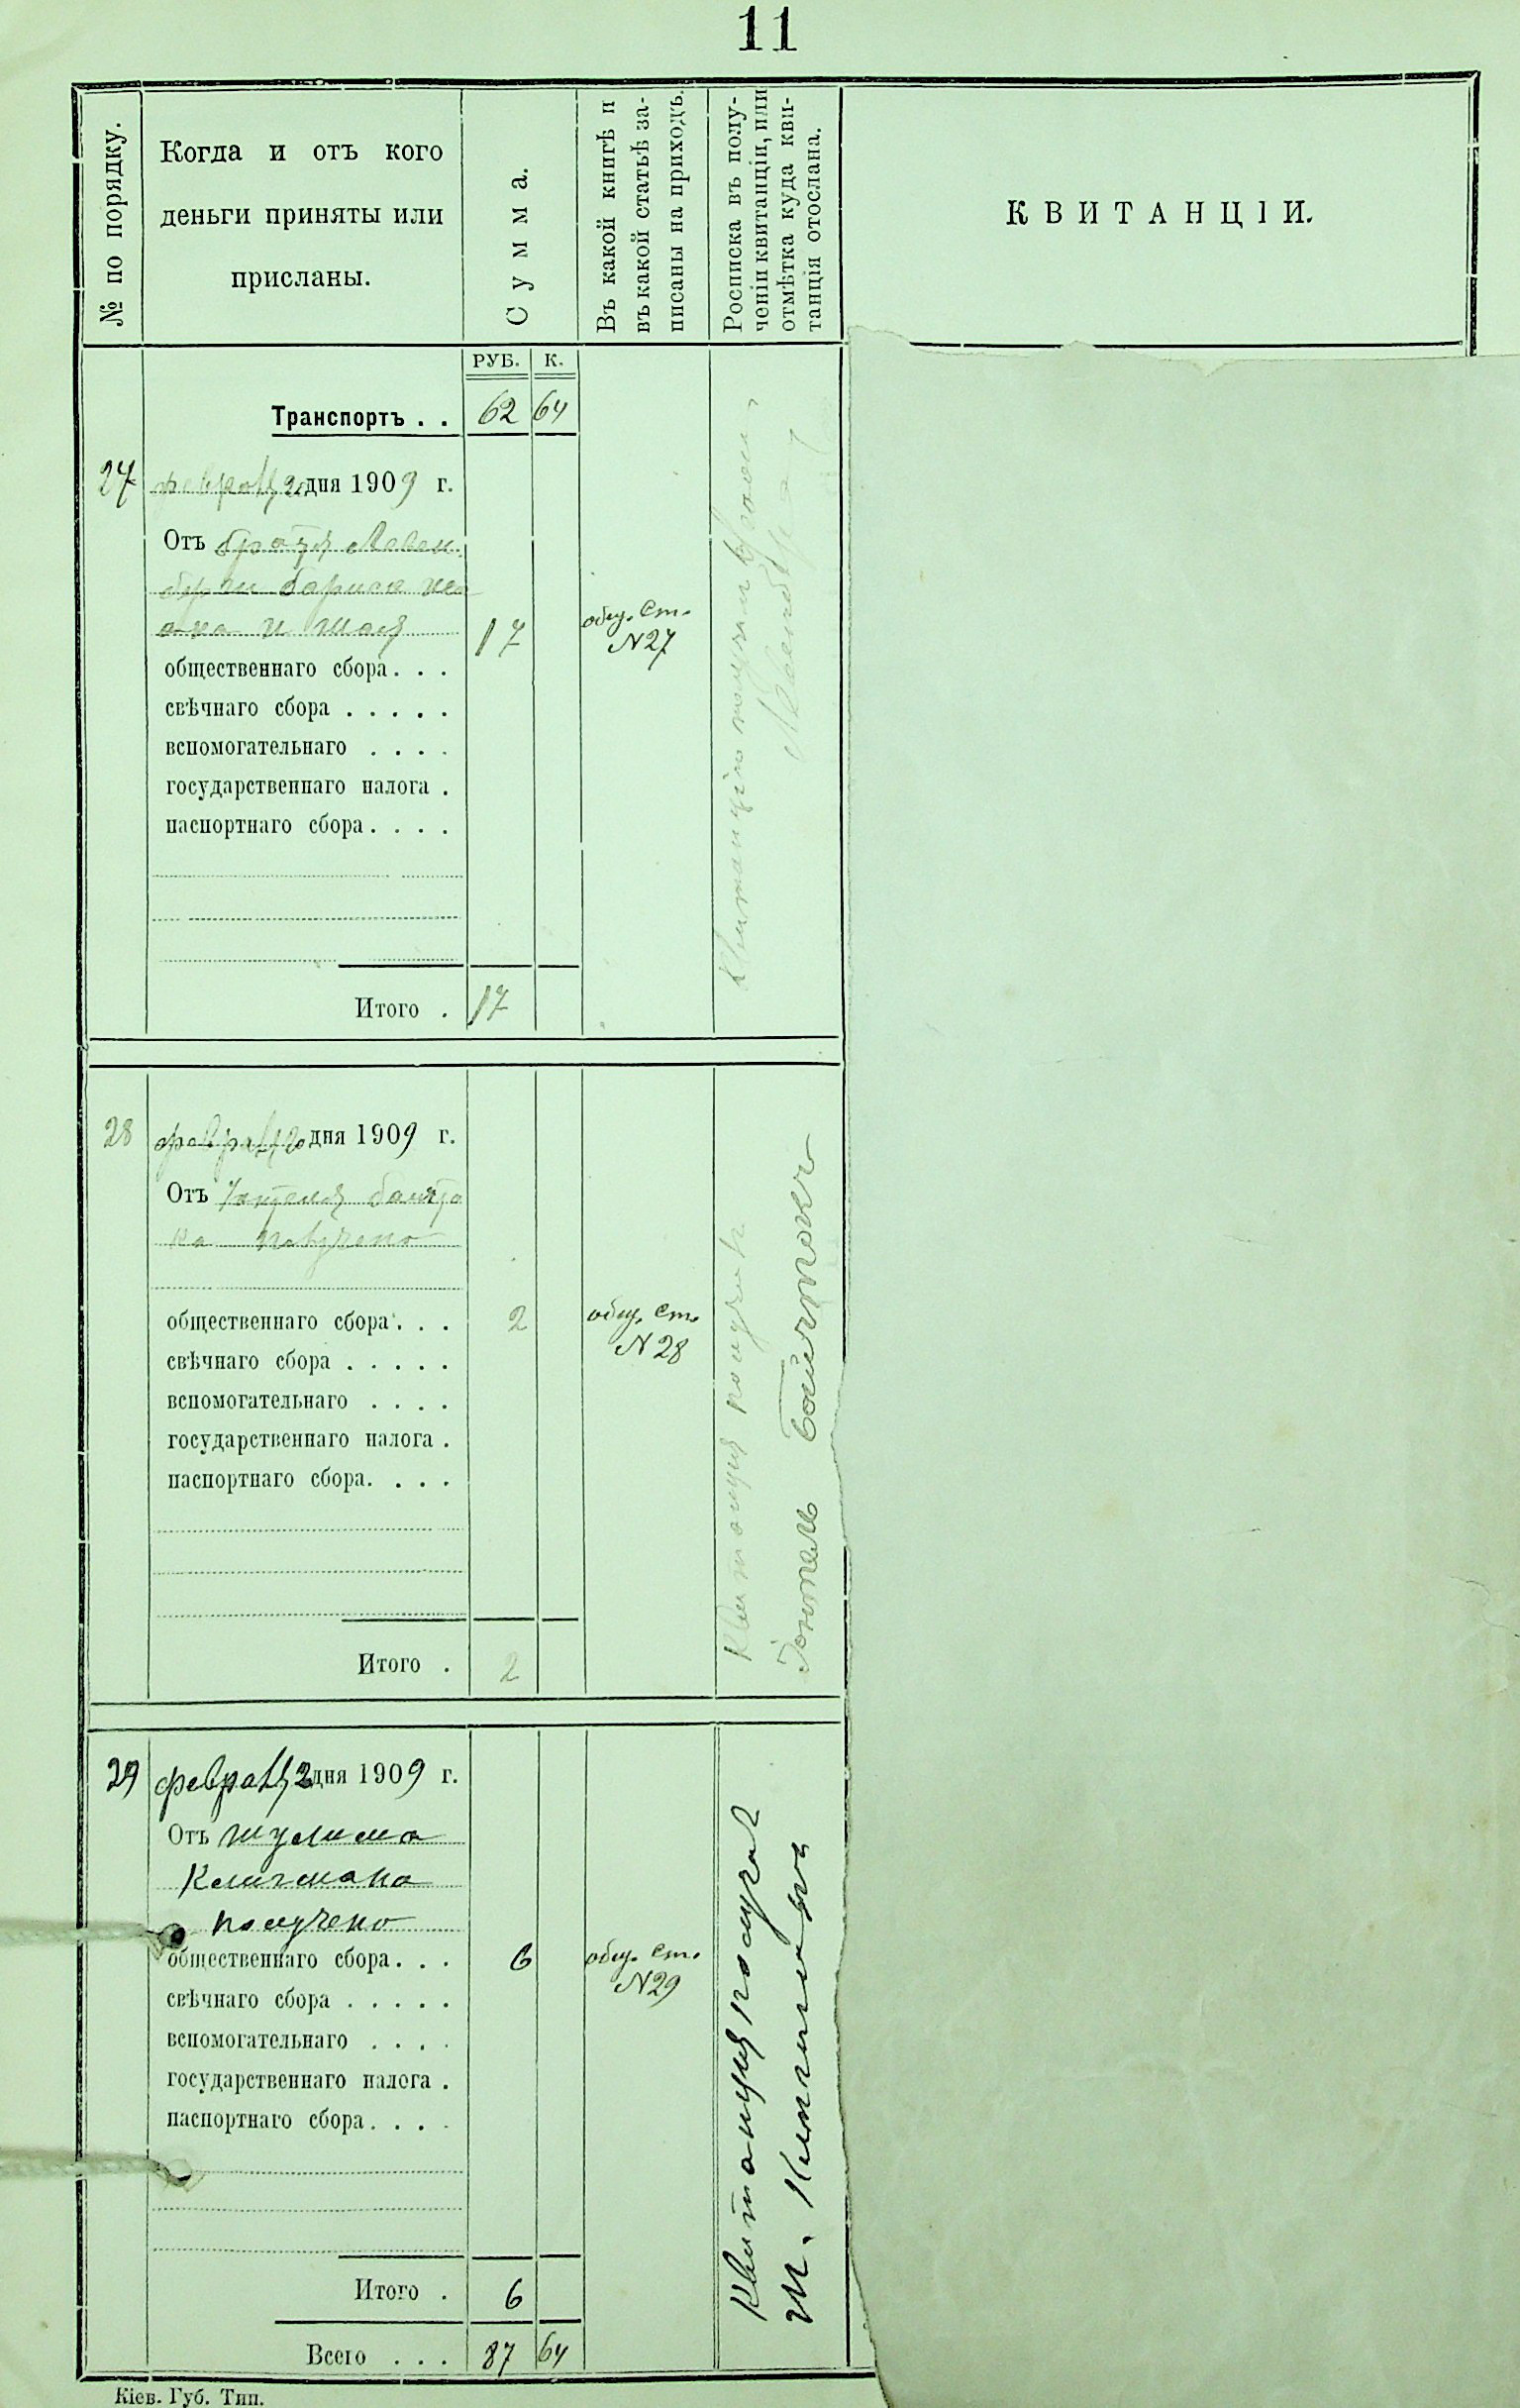 11
№ по порядку.
Когда и отъ кого
деньги приняты или
присланы.
Сумма.
Въ какой книгѣ и
въ какой статьѣ за-
писаны на приходъ.
Росписка въ полу-
ченіи квитанціи, или
отмѣтка куда кви-
танція отослана.
КВИТАНЦІИ.
РУБ. К.
Транспортъ . . 62 64
27 февраля 2 дня 1909 г.
Отъ
и
17 общ. ст.
N27
общественнаго сбора. . .
свѣчнаго сбора . . . . .
вспомогательнаго . . . .
государственнаго налога .
паспортнаго сбора. . . .
Итого . 17
Квитанцію получилъ
28 февраля 2 дня 1909 г.
Отъ
получено
общественнаго сбора. . . 2 общ. ст.
N28
свѣчнаго сбора . . . . .
вспомогательнаго . . . .
государственнаго налога .
паспортнаго сбора. . . .
Итого . 2
Квитанция получилъ
29 февраля 2 дня 1909 г.
Отъ шулима
Клигмана
получено
общественнаго сбора. . . 6 общ. ст.
N29
свѣчнаго сбора . . . . .
вспомогательнаго . . . .
государственнаго налога .
паспортнаго сбора. . . .
Итого . 6
Квитанция получил
Всего . . . 87 64
Кіев. Губ. Тип.